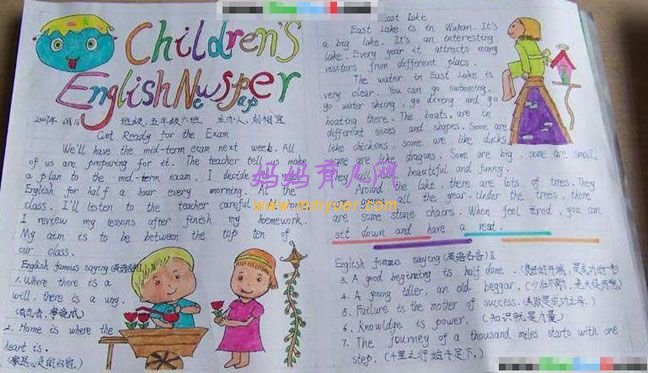 Children's
English Newspaper
班级:五年级六班 主办人:刘相宜
Get Ready for the Exam
We'll have the mid-term exam next week. All
of us are preparing for it. The teacher tell
a plan to the mid-term exam. I decide
English for half a hour every morning. At the
class. I'll listen to the teacher careful
I review my lessons after finish my homework.
My aim is to be between the top ten of
our class.
English famous saying
1. Where there is a
will. there is a way.
2. Home is where the
heart is.
East Lake
East Lake is in Wuhan. It's
a big lake. It's an interesting
lake. Every year it attracts many
visitors from different places.
The water in East Lake is
very clear. You can go swimming.
go water skiing. go diving and go
boating there. The boats are in
different sizes and shapes. Some are
like chickens, some are like ducks
some are like dragons. Some are big, some are small.
They all beautiful and funny.
Around the lake, there are lots of trees. They
all the year. Under the trees, there
are some stone chairs. When feel tired, you can
sit down and have a rest.
English famous saying (英语名言) II
3. A good beginning is half done.
4. A young idler, an old beggar.
5. Failure is the mother of success. (失败是成功之母.)
6. Knowledge is power. (知识就是力量)
7. The journey of a thousand miles starts with one
step. (千里之行始于足下.)
妈妈育人网
www.mmyuer.com